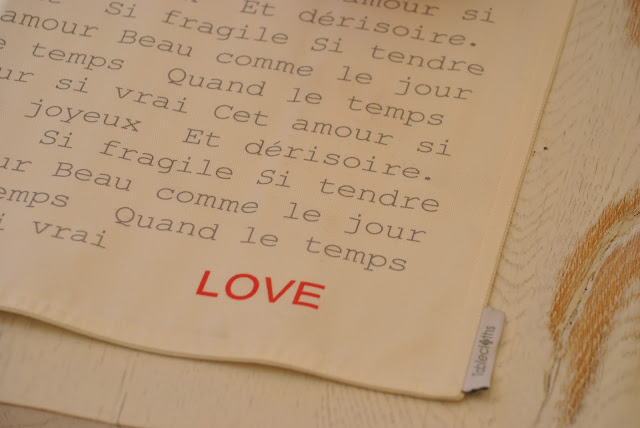 amour si
Et dérisoire.
Si fragile Si tendre
amour Beau comme le jour
temps Quand le temps
ur si vrai Cet amour si
joyeux Et dérisoire.
Si fragile Si tendre
ur Beau comme le jour
emps Quand le temps
i vrai
LOVE
Tablecloths